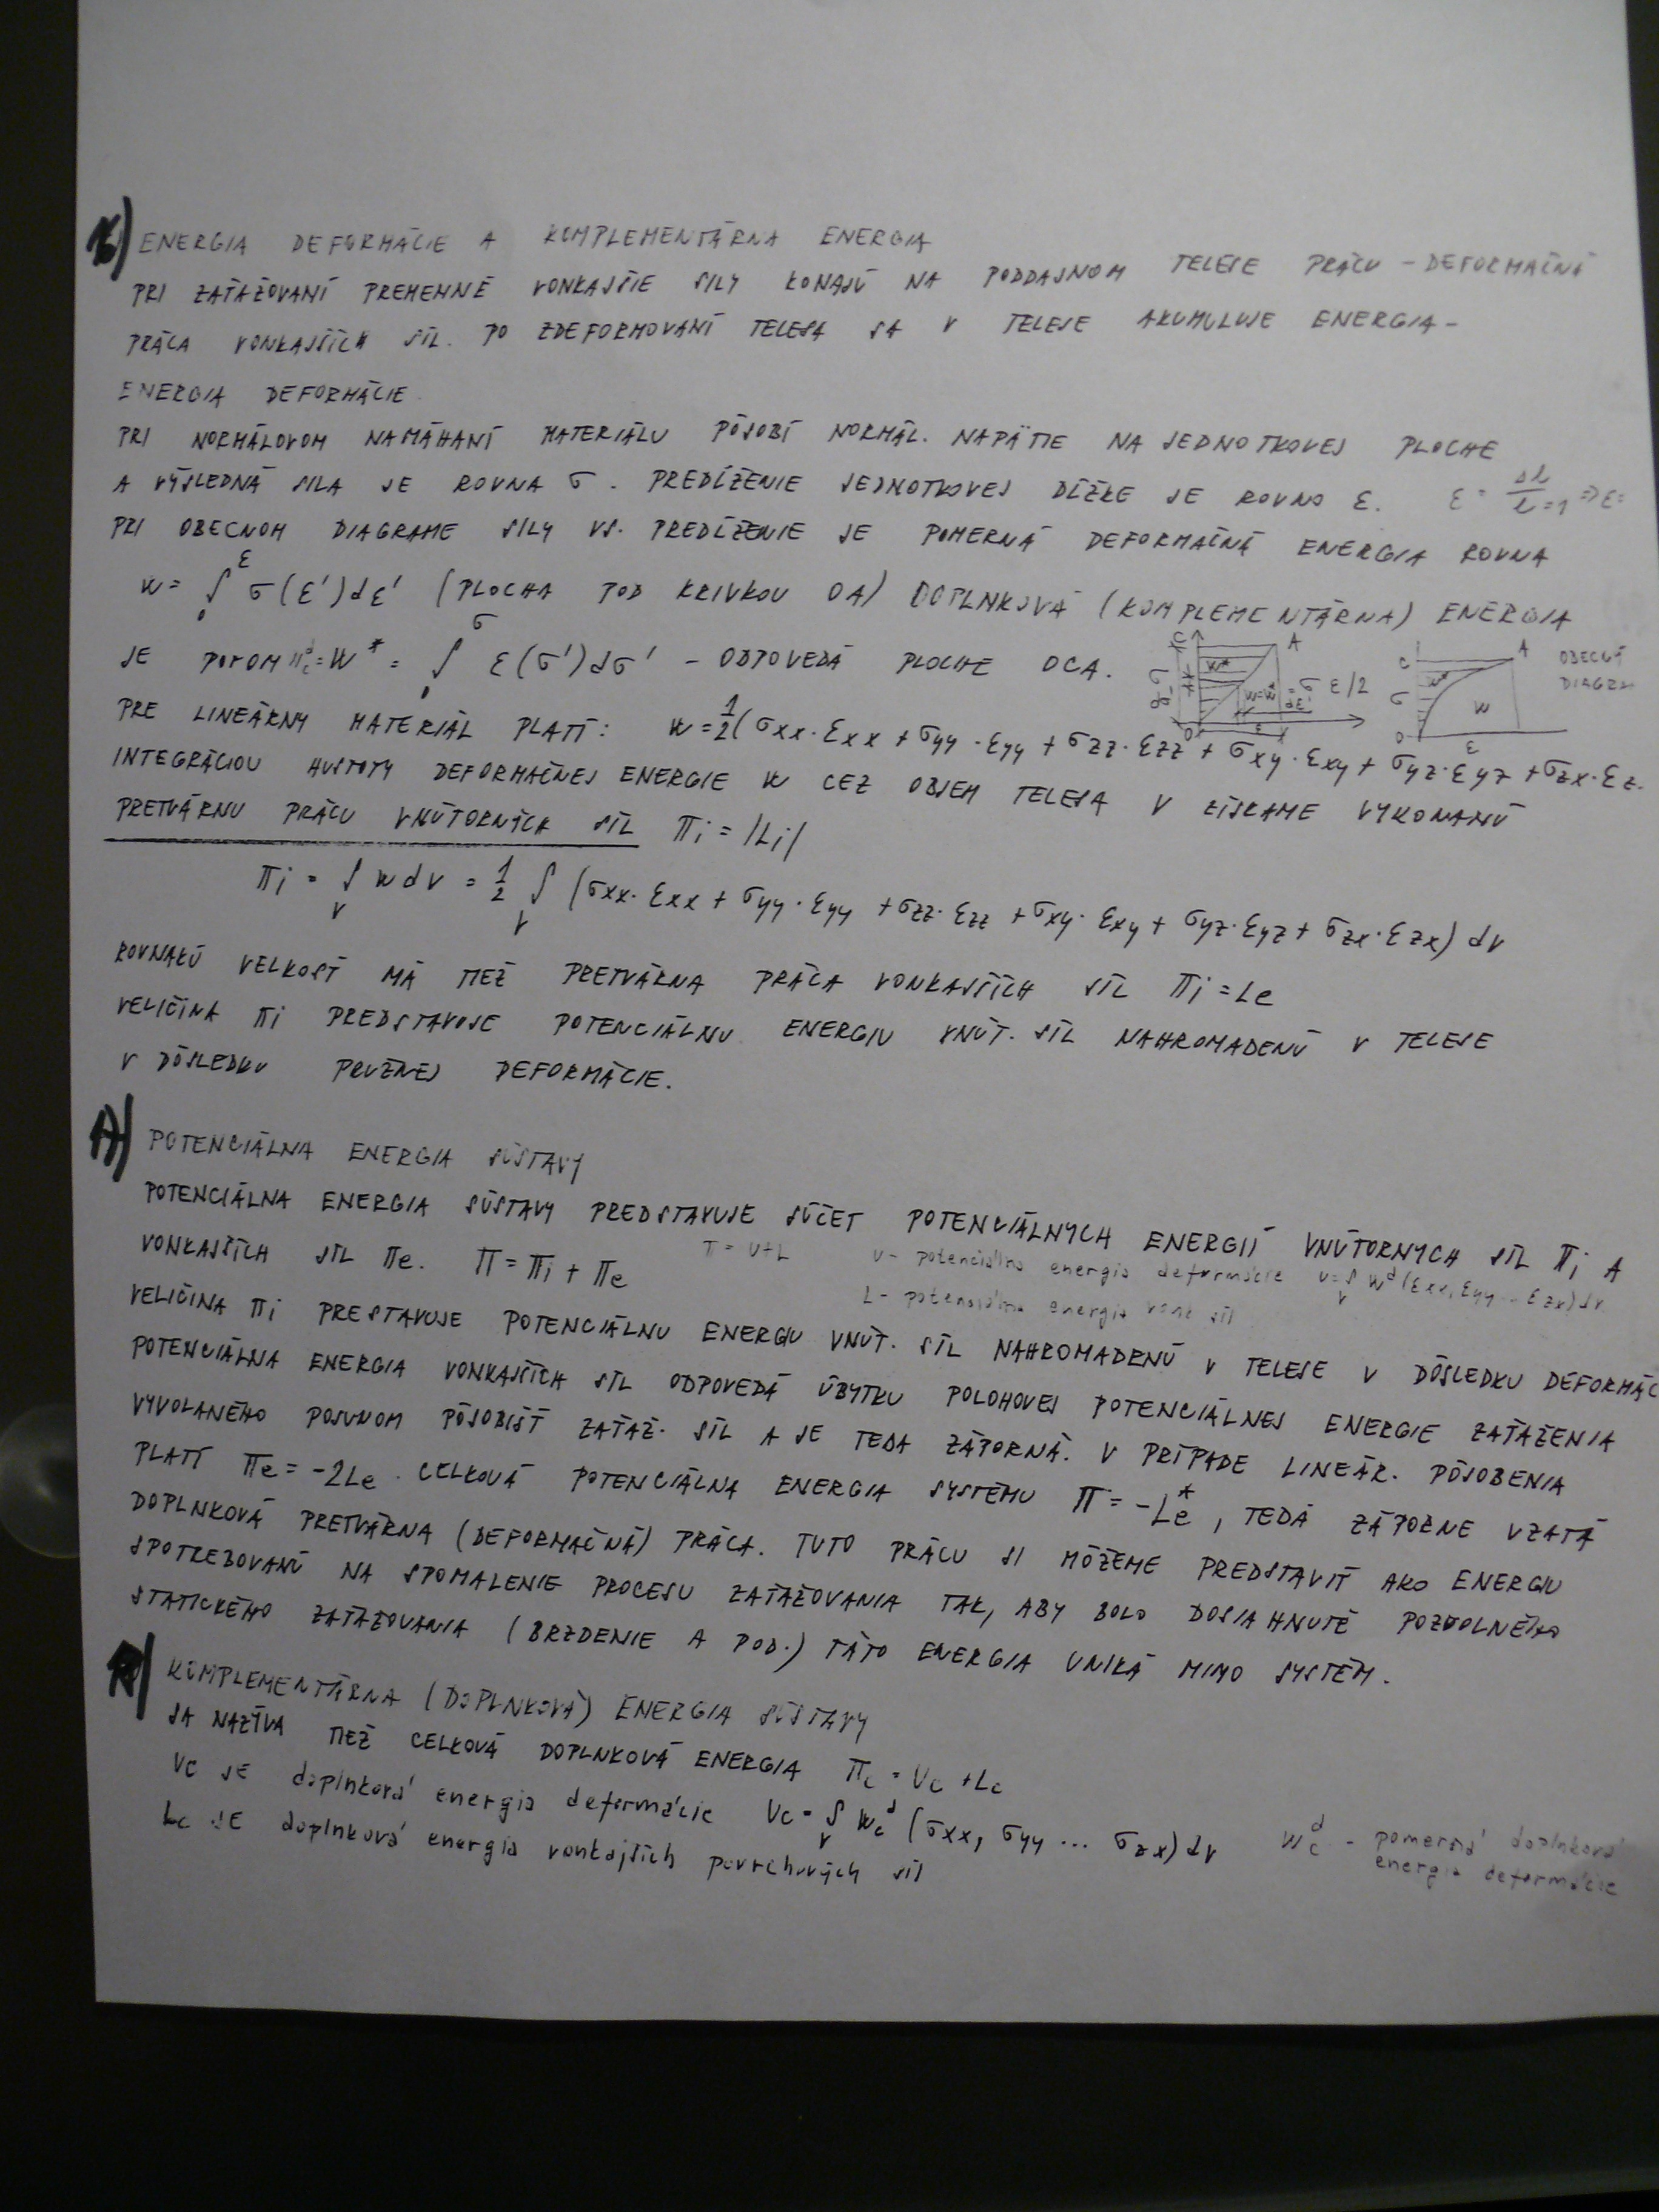 ENERGIA DEFORMÁCIE A KOMPLEMENTÁRNA ENERGIA
PRI ZAŤAŽOVANÍ PREMENNÉ VONKAJŠIE SILY KONAJÚ NA PODDAJNOM TELESE PRÁCU - DEFORMAČNÁ
PRÁCA VONKAJŠÍCH SÍL. PO ZDEFORMOVANÍ TELESA SA V TELESE AKUMULUJE ENERGIA -
ENERGIA DEFORMÁCIE.
PRI NORMÁLOVOM NAMÁHANÍ MATERIÁLU PÔSOBÍ NORMÁL. NAPÄTIE NA JEDNOTKOVEJ PLOCHE
A VÝSLEDNÁ SILA JE ROVNA σ. PREDĹŽENIE JEDNOTKOVEJ DĹŽKE JE ROVNO ε. ε = Δl / l=1 => ε=
PRI OBECNOM DIAGRAME SILY VS. PREDĹŽENIE JE POMERNÁ DEFORMAČNÁ ENERGIA ROVNA
W = ∫₀^ε σ(ε')dε' (PLOCHA POD KRIVKOU OA) DOPLNKOVÁ (KOMPLEMENTÁRNA) ENERGIA
JE POTOM Πc^d = W* = ∫₀^σ ε(σ')dσ' - ODPOVEDÁ PLOCHE OCA.
C A W* σ W=W* = σ ε/2 dε' ε 0
C A W* σ W 0 ε OBECNÝ
PRE LINEÁRNY MATERIÁL PLATÍ: W = 1/2 (σxx·εxx + σyy·εyy + σzz·εzz + σxy·εxy + σyz·εyz + σzx·εz
INTEGRÁCIOU HUSTOTY DEFORMAČNEJ ENERGIE W CEZ OBJEM TELESA V ZÍSKAME VYKONANÚ
PRETVÁRNU PRÁCU VNÚTORNÝCH SÍL Πi = |Li|
Πi = ∫v W dV = 1/2 ∫v (σxx·εxx + σyy·εyy + σzz·εzz + σxy·εxy + σyz·εyz + σzx·εzx) dV
ROVNAKÚ VELKOSŤ MÁ TIEŽ PRETVÁRNA PRÁCA VONKAJŠÍCH SÍL Πi = Le
VELIČINA Πi PREDSTAVUJE POTENCIÁLNU ENERGIU VNÚT. SÍL NAHROMADENÚ V TELESE
V DÔSLEDKU PRUŽNEJ DEFORMÁCIE.
A) POTENCIÁLNA ENERGIA SÚSTAVY
POTENCIÁLNA ENERGIA SÚSTAVY PREDSTAVUJE SÚČET POTENCIÁLNYCH ENERGIÍ VNÚTORNÝCH SÍL Πi A
VONKAJŠÍCH SÍL Πe. Π = Πi + Πe
Π = U+L U - potenciálna energia deformácie U = ∫v W^d (εxx, εyy ... εzx) dV
L - potenciálna energia vonk síl
VELIČINA Πi PRESTAVUJE POTENCIÁLNU ENERGIU VNÚT. SÍL NAHROMADENÚ V TELESE V DÔSLEDKU DEFORMÁC
POTENCIÁLNA ENERGIA VONKAJŠÍCH SÍL ODPOVEDÁ ÚBYTKU POLOHOVEJ POTENCIÁLNEJ ENERGIE ZAŤAŽENIA
VYVOLANÉHO POSUNOM PÔSOBÍŠŤ ZAŤAŽ. SÍL A JE TEDA ZÁPORNÁ. V PRÍPADE LINEÁR. PÔSOBENIA
PLATÍ Πe = -2Le. CELKOVÁ POTENCIÁLNA ENERGIA SYSTÉMU Π = -Le*, TEDÁ ZÁPORNE VZATÁ
DOPLNKOVÁ PRETVÁRNA (DEFORMAČNÁ) PRÁCA. TUTO PRÁCU SI MÔŽEME PREDSTAVIŤ AKO ENERGIU
SPOTREBOVANÚ NA SPOMALENIE PROCESU ZAŤAŽOVANIA TAK, ABY BOLO DOSIAHNUTÉ POZVOLNÉHO
STATICKÉHO ZAŤAŽOVANIA (BRZDENIE A POD.) TÁTO ENERGIA UNIKÁ MIMO SYSTÉM.
KOMPLEMENTÁRNA (DOPLNKOVÁ) ENERGIA SÚSTAVY
SA NAZÝVA TIEŽ CELKOVÁ DOPLNKOVÁ ENERGIA Πc = Uc + Lc
Uc JE doplnková energia deformácie Uc = ∫v Wc^d (σxx, σyy ... σzx) dV
Wc^d - pomerná doplnková
energia deformácie
Lc JE doplnková energia vonkajších povrchových síl